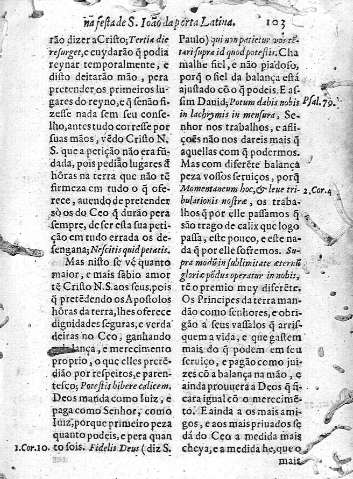 na festa de S. Ioão da porta Latina. 103
rão dizer a Cristo; Tertia die
resurget, e cuydarão q̃ podia
reynar temporalmente, e
disto deitarão mão, pera
pretender os primeiros lu-
gares do reyno, e q̃ senão fi-
zesse nada sem seu conse-
lho, antes tudo corresse por
suas mãos, vẽdo Cristo N.
S. que a petição não era fũ-
dada, pois pedião lugares d̃
hõras na terra que não tẽ
firmeza em tudo o q̃ ofe-
rece, auendo de pretender
sò os do Ceo q̃ durão pera
sempre, de ser esta sua peti-
ção em tudo errada os de-
sengana; Nescitis quid petatis.
Mas nisto se vẽ quanto
maior, e mais sabio amor
tẽ Cristo N.S. aos seus, pois
q̃ pretẽdendo os Apostolos
hõras da terra, lhes oferece
dignidades seguras, e verda
deiras no Ceo, ganhando
lança, e merecimento
proprio, o que elles pretẽ-
dião por respeitos, e paren-
tesco; Potestis bibere calicem.
Deos manda como Iuiz, e
paga como Senhor, como
Iuiz, porque primeiro peza
quanto podeis, e pera quan
1.Cor.10. to sois. Fidelis Deus (diz S.
Paulo) qui non patietur vos tẽ-
tari supra id quod potestis. Cha
malhe fiel, e não piadoso,
porq̃ o fiel da balança està
ajustado cõ o q̃ podeis. E as-
sim Dauid; Potum dabis nobis Psal.79.
in lachrymis in mensura, Se-
nhor nos trabalhos, e afli-
ções não nos dareis mais q̃
aquellas com q̃ podermos.
Mas com diferẽte balança
peza vossos serviços, porq̃
Momentaneum hoc, & leue tri- 2.Cor.4
bulationis nostræ, os traba-
lhos q̃ por elle passamos q̃
são trago de calix que logo
passa, este pouco, e este na-
da q̃ por elle sofremos. Su-
pra modũ in sublimitate æternũ
gloriæ põdus operatur in nobis,
tẽ o premio muy diferẽte.
Os Principes da terra man
dão como senhores, e obri-
gão a seus vassalos q̃ arris-
quem a vida, e que gastem
mais do q̃ podem em seu
seruiço, e pagão como jui-
zes cõ a balança na mão, e
ainda prouuera a Deos q̃ fi-
cara igual cõ o merecimẽ-
to. E ainda a os mais ami-
gos, e aos mais priuados se
dá do Ceo a medida mais
cheya, e a medida, que o
mais